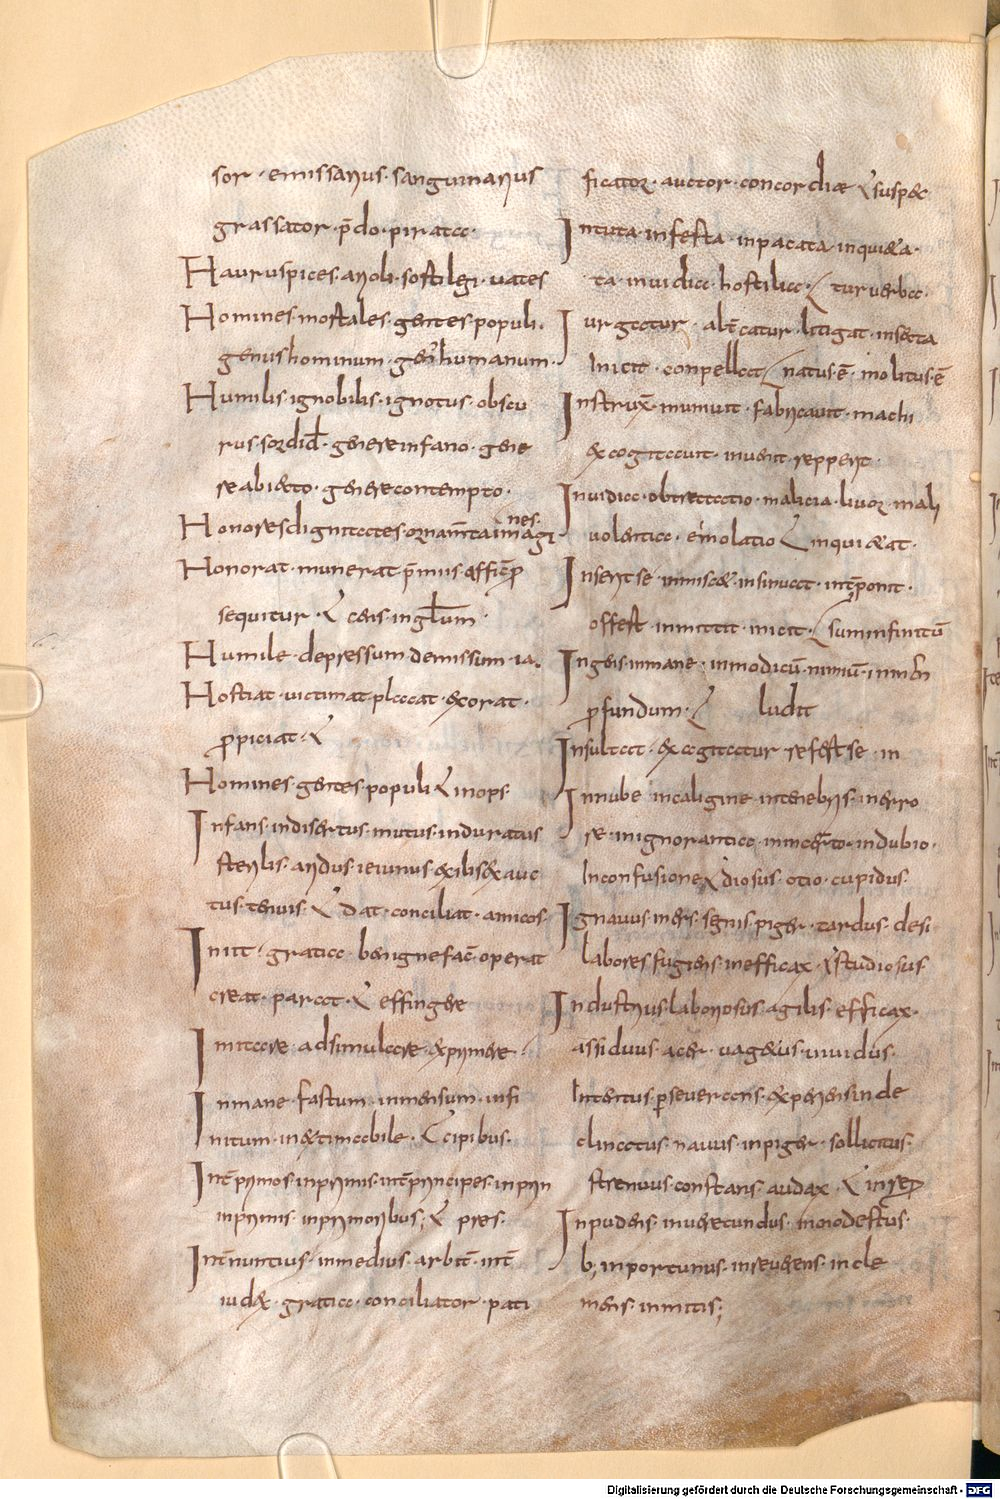 sor · emissarius · sanguinarius
grassator · p̄do · pirata ·
Hauruspices · arioli · sortilegi · uates
Homines · mortales · gentes · populi ·
genus hominum · gen' humanum ·
Humilis · ignobilis · ignotus · obscu
rus · sordid · genere infano · gene
re abiecto · genere contempto ·
Honores dignitates · ornam̄ta imagi
nes ·
Honorat · munerat · p̄mus
sequitur · cens ·
Humile · depressum demissum · ia ·
Hostiat · uictimat placat · exorat ·
ꝓpiciat ·
Homines · gentes · populi inops ·
Infans · indisertus · mutus · induratus
sterilis · aridus · ieiunus · exilis exauc
tus · tenuis · dat · conciliat · amicos ·
Init · gratia · benigne fac̄ · operat
creat · parat · effingere
Imitare · adsimulare exprimere ·
Inmane · fastum · inmensum · infi
nitum · inextimabile · cipibus ·
Int̄ primos · inprimis · int̄ principes · in prim
inprimis · inprimoribus ; pres ·
Int̄nuntius · inmedius · arbit̄ · int̄
iudex · gratia · conciliator · pati
ficator · auctor · concordiae suspec
Intuta · infesta · inpacata inquieta ·
ta inuidia · hostilia · turuerba ·
Iurgatur · alt̄catur · litigat · insecta
Iniet · conpellat natus · ē · molitus · ē
Instrux̄ · muniuit · fabricauit · machi
excogitauit · inuenit · repperit ·
Inuidia · obtrectatio · malicia · liuor · mali
uolentia · emolatio inquietat ·
Inserit se inmiscet · insinuat · int̄ponit ·
offert · inmittit · iniecit · sum infinitū
Ingens · inmane · inmodicū · nimiū ·
ꝓfundum · ludit
Insultat · excogitatur refert se · in
In nube in caligine · in tenebris · in erro
re · in ignorantia · in incerto · in dubio ·
In confusione diosus · otio · cupidus ·
Ignauus · iners · segnis · piger · tardus · desi
labores fugiens · inefficax · studiosus ·
Industrius · laboriosus · agilis · efficax ·
assiduus · acer · uagetus · inuidus ·
Intentus · perseuerans · experiens inde
clinatus · nauus · inpiger · sollicitus ·
strenuus · constans · audax ·
Inpudens · inuerecundus · inmodestus ·
b; inportunus · inseuerens · incle
mens · inmitis ;
Digitalisierung gefördert durch die Deutsche Forschungsgemeinschaft - DFG